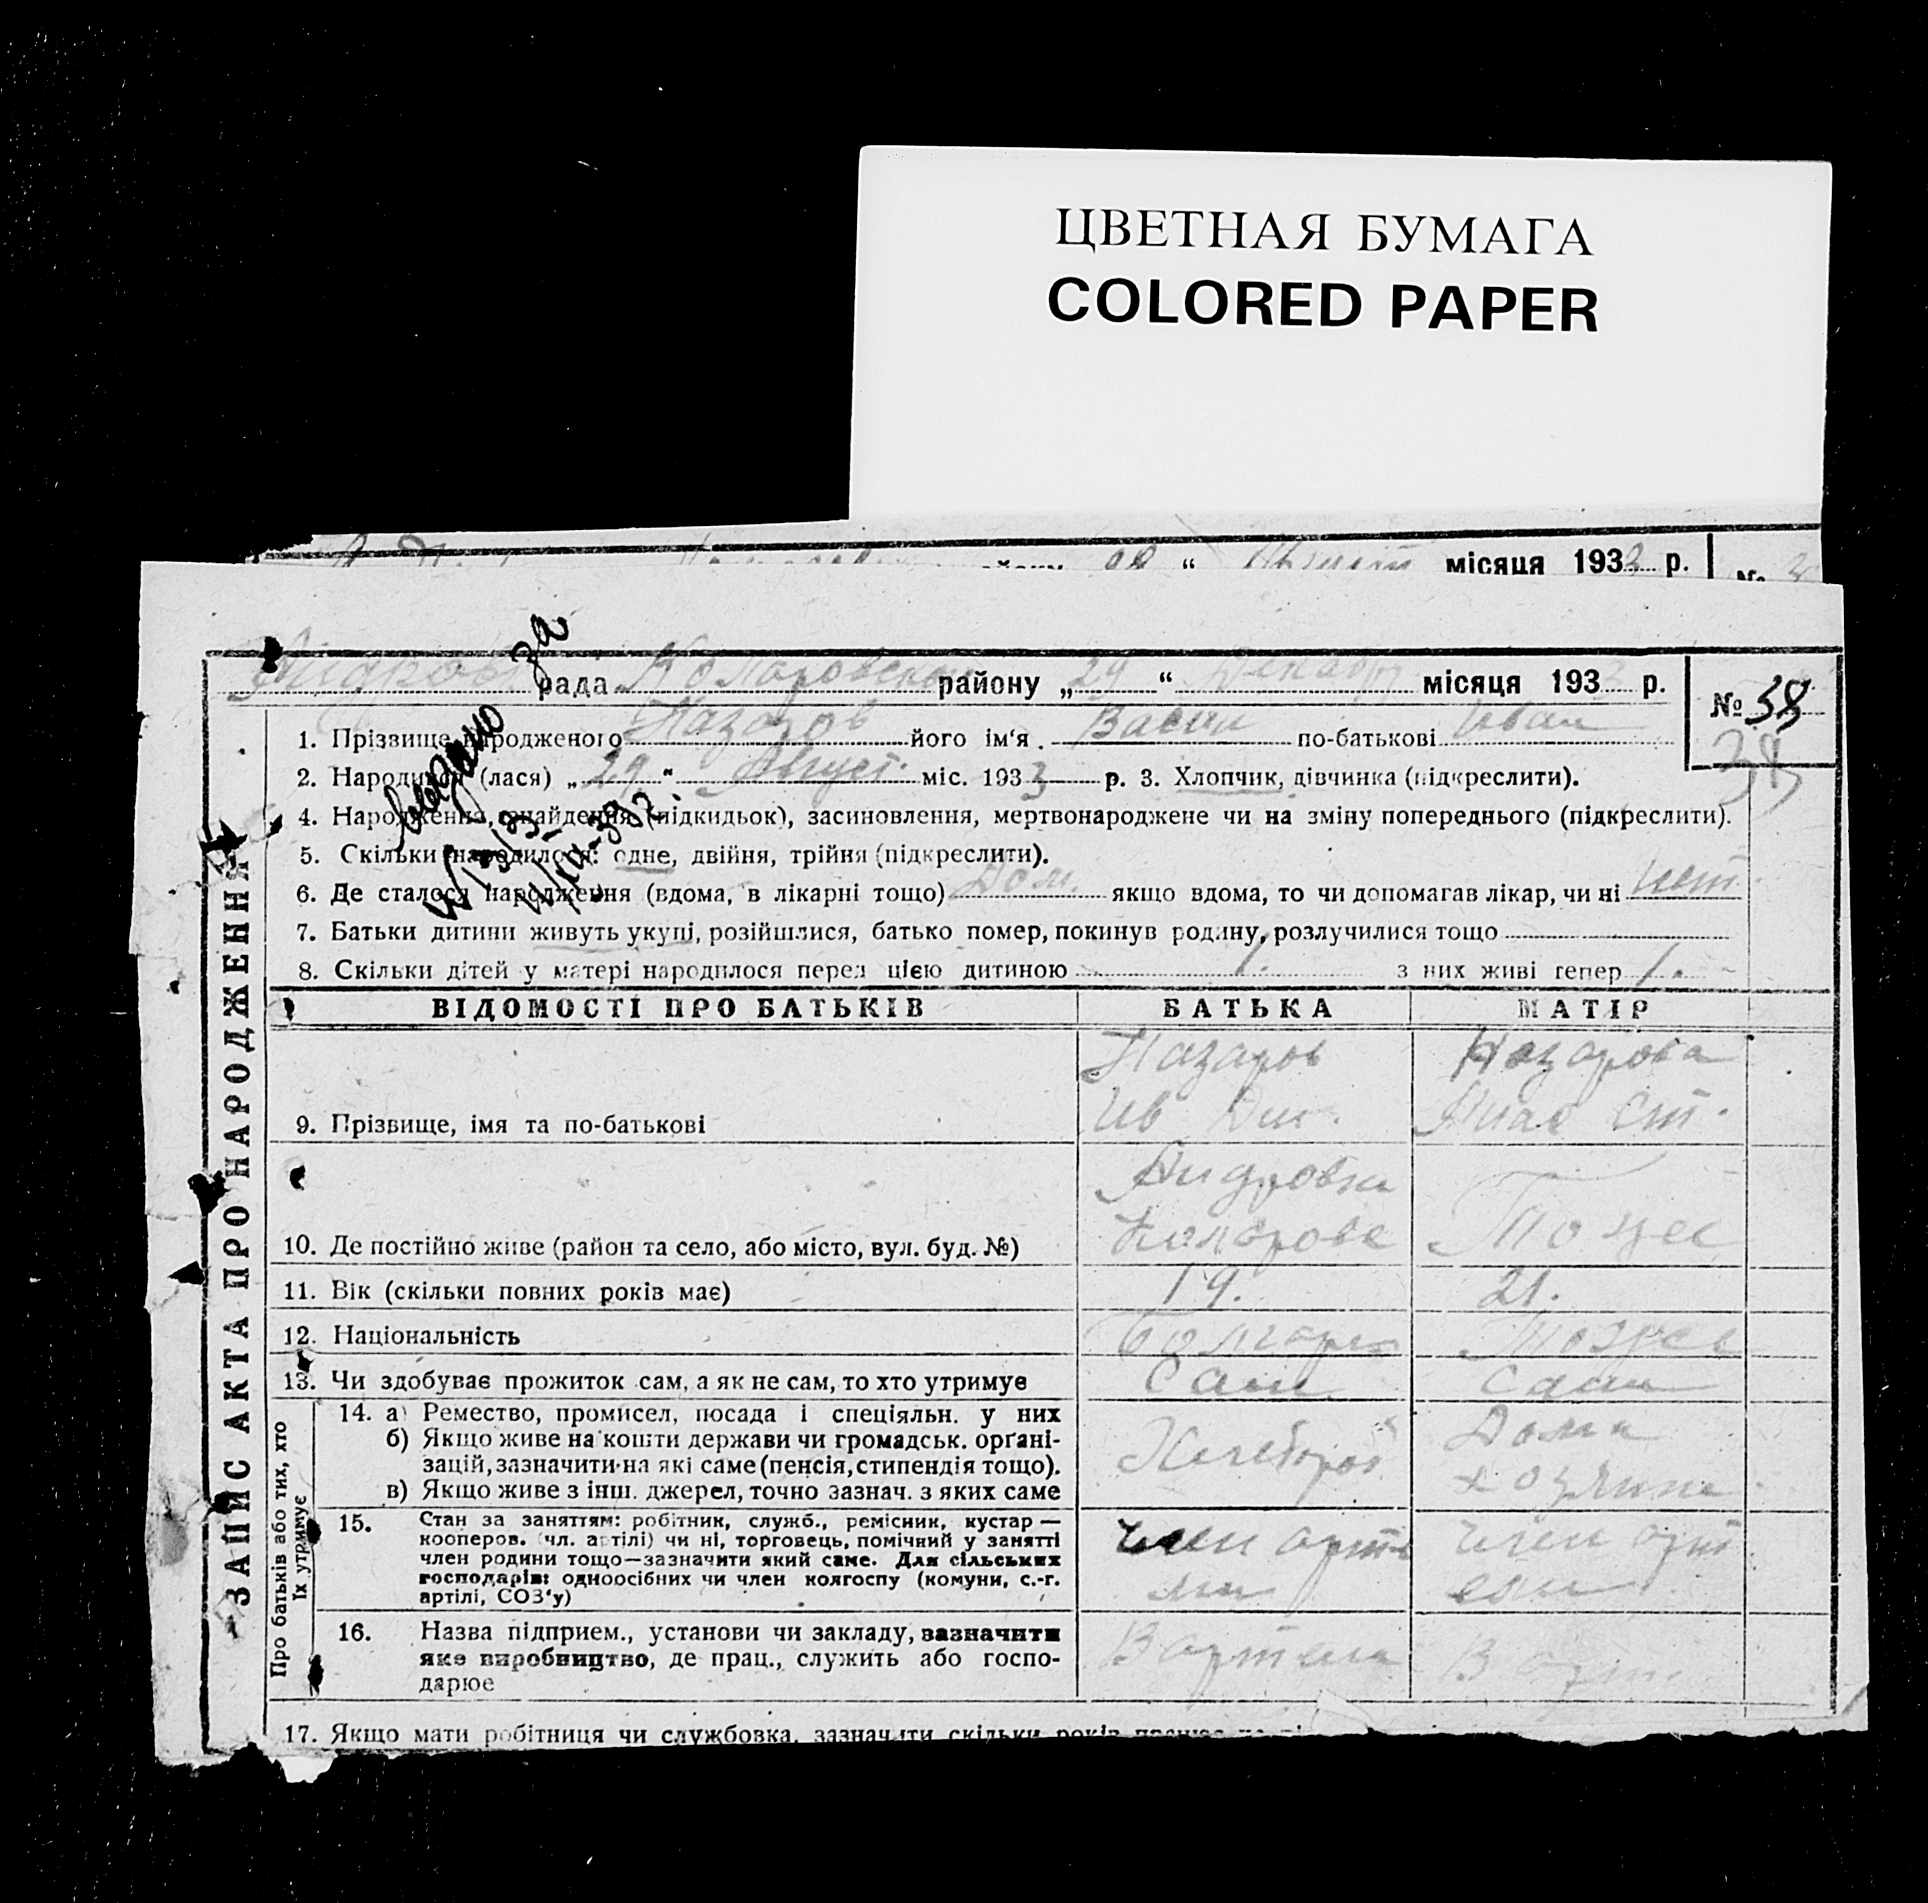 ЦВЕТНАЯ БУМАГА
COLORED PAPER
місяця 1933 р. №
Андров рада Коларовской району „ 29 “ Декабр місяця 193 р. № 38
38
1. Прізвище народженого Назаров його ім‘я Васил по-батькові Иван
2. Народився (лася) „ 29 “ Август. міс. 1933 р. 3. Хлопчик, дівчинка (підкреслити).
4. Народження, знайдення (підкидьок), засиновлення, мертвонароджене чи на зміну попереднього (підкреслити).
5. Скільки народилося: одне, двійня, трійня (підкреслити).
6. Де сталося народження (вдома, в лікарні тощо) Дом. якщо вдома, то чи допомагав лікар, чи ні нет.
7. Батьки дитини живуть укупі, розійшлися, батько помер, покинув родину, розлучилися тощо
8. Скільки дітей у матері народилося перед цією дитиною 1. з них живі тепер 1.
Видано за
ЗАПИС АКТА ПРО НАРОДЖЕННЯ
ВІДОМОСТІ ПРО БАТЬКІВ БАТЬКА МАТІР
Назаров Назарова
Ив Дм. Анас Ст.
9. Прізвище, імя та по-батькові
Андровка
Коларовс Тоже
10. Де постійно живе (район та село, або місто, вул. буд. №)
11. Вік (скільки повних років має) 19. 21.
12. Національність Болгаре
13. Чи здобуває прожиток сам, а як не сам, то хто утримує Сам Сама
Про батьків або тих, хто їх утримує
14. а) Ремество, промисел, посада і спеціяльн. у них
б) Якщо живе на кошти держави чи громадськ. орґані-
зацій, зазначити на які саме (пенсія, стипендія тощо). Хлебороб Дома
в) Якщо живе з інш. джерел, точно зазнач. з яких саме
15. Стан за заняттям: робітник, служб., ремісник, кустар —
кооперов. (чл. артілі) чи ні, торговець, помічний у занятті
член родини тощо—зазначити який саме. Для сільських
господарів: одноосібних чи член колгоспу (комуни, с.-г.
артілі, СОЗ‘у) член арте ли член арт ели
16. Назва підприєм., установи чи закладу, зазначити В артели В арт.
яке виробництво, де прац., служить або госпо-
дарює
17. Якщо мати робітниця чи службовка, зазначити скільки років працює